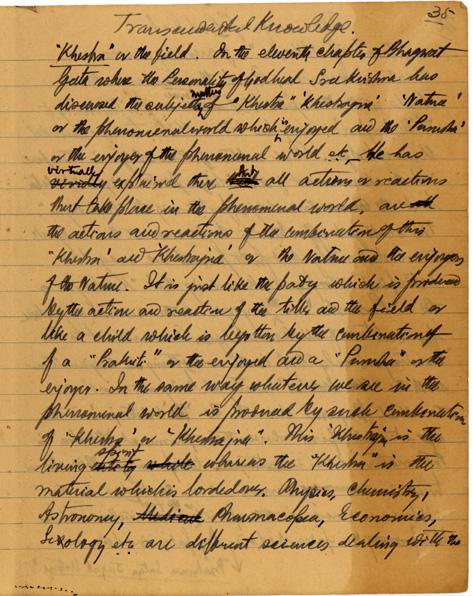 35
Transcendental Knowledge.
"Khestra" or the field. In the eleventh chapter of Bhagwat
Geeta where the Personality of Godhead Sree Krishna has
discussed the subject matter of "Khestra" "Khestrajna" 'Nature'
or the phenomenal world which is enjoyed and the 'Purusha'
or the enjoyer of the phenomenal world etc. He has
virtually explained there that all actions or reactions
that take place in the phenomenal world, are
the actions and reactions of the combination of this
"Khestra" and "Khestrajna" or the Nature and the enjoyer
of the Nature. It is just like the paddy which is produced
by the action and reaction of the tiller and the field or
like a child which is begotten by the combination of
of a "Prakriti" or the enjoyed and a "Purusha" or the
enjoyer. In the same way whatever we see in the
phenomenal world is produced by such combination
of "Khestra" or "Khestrajna". This 'Khestrajna is the
living spirit whereas the "Khestra" is the
material which is lorded over. Physics, Chemistry,
Astronomy, Medical Pharmacopea, Economics,
Sexology etc are different sciences dealing with the